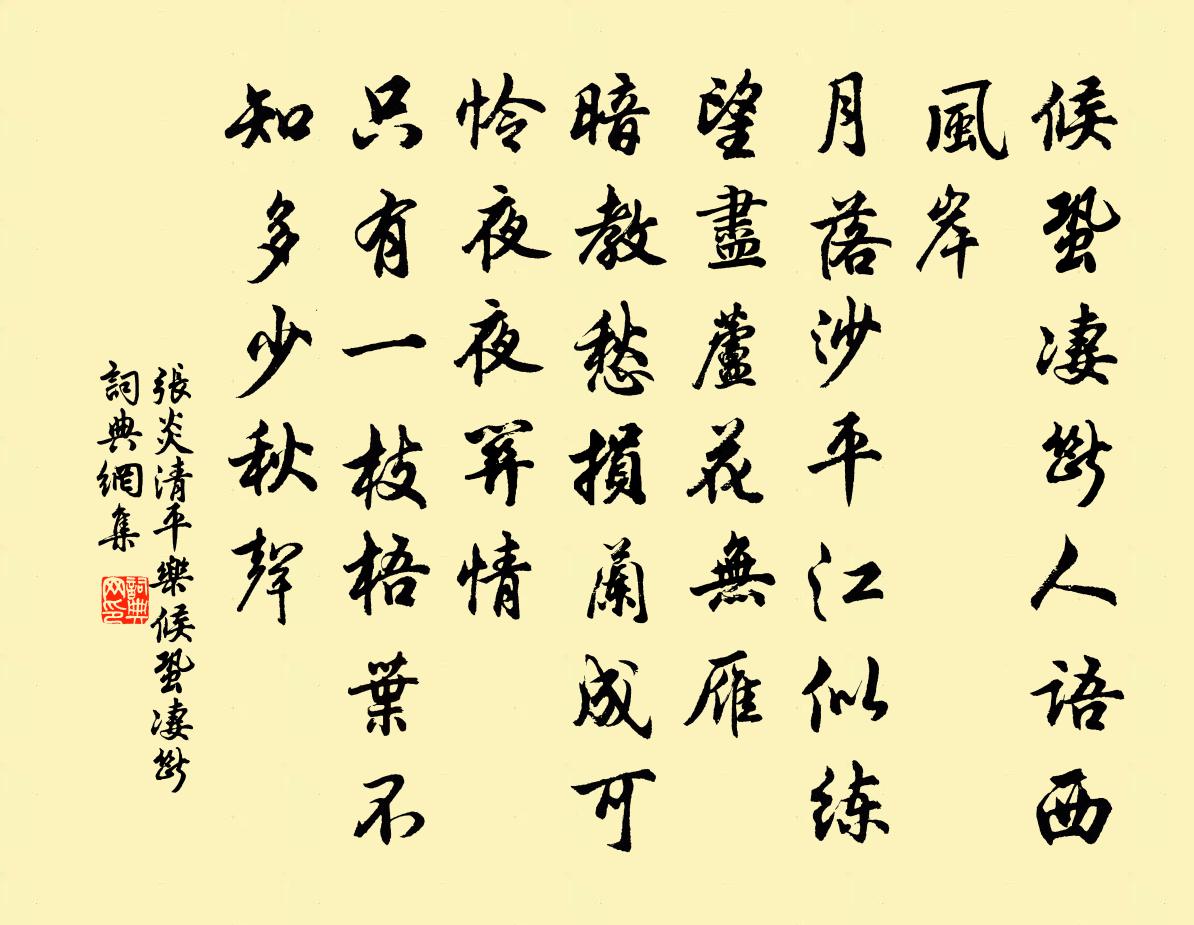 候蛩凄斷人語西
風岸
月落沙平江似練
望盡蘆花無雁
暗教愁損蘭成可
怜夜夜關情
只有一枝梧葉不
知多少秋聲
張炎清平樂候蛩凄斷
詞典網集
詞典
网印